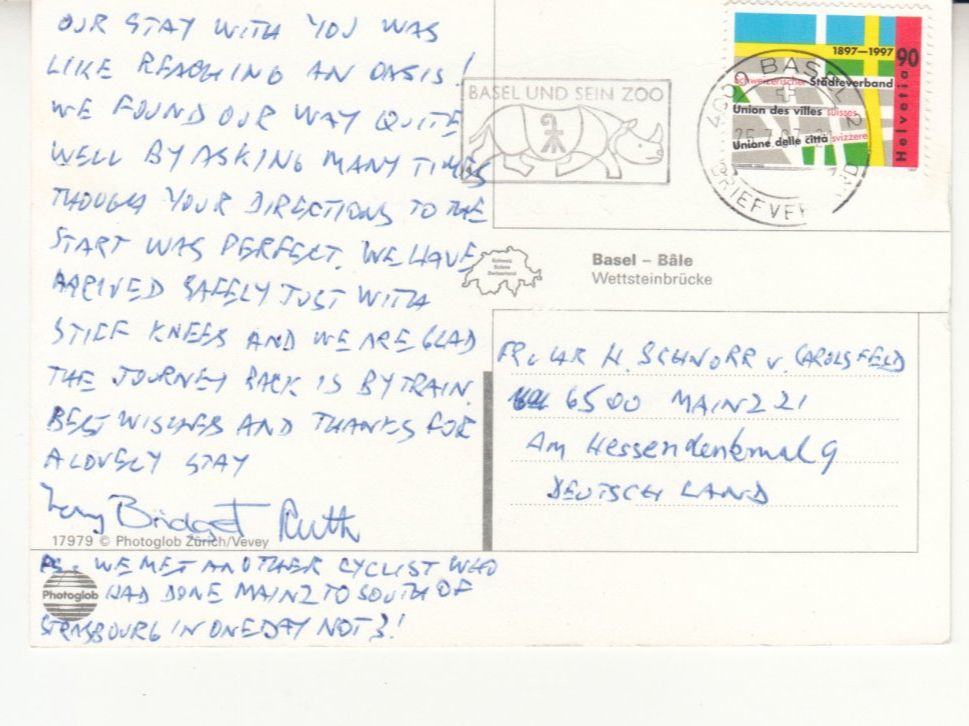 OUR STAY WITH YOU WAS
LIKE REACHING AN OASIS!
WE FOUND OUR WAY QUITE
WELL BY ASKING MANY TIMES
THOUGH YOUR DIRECTIONS TO THE
START WAS PERFECT. WE HAVE
ARRIVED SAFELY JUST WITH
STIFF KNEES AND WE ARE GLAD
THE JOURNEY BACK IS BY TRAIN.
BEST WISHES AND THANKS FOR
A LOVELY STAY
Bridget Ruth
17979 © Photoglob Zürich/Vevey
PS. WE MET ANOTHER CYCLIST WHO
HAD DONE MAINZ TO SOUTH OF
STRASBOURG IN ONE DAY NOT 3!
Photoglob
BASEL UND SEIN ZOO
4000 BASEL 2
25.7.97
BRIEFVER
1897–1997 90
Schweizerischer Städteverband
Union des villes suisses
Unione delle città svizzere
Helvetia
Schweiz
Suisse
Switzerland
Basel – Bâle
Wettsteinbrücke
H. SCHNORR v. CAROLSFELD
6500 MAINZ 21
Am Hessendenkmal 9
DEUTSCHLAND